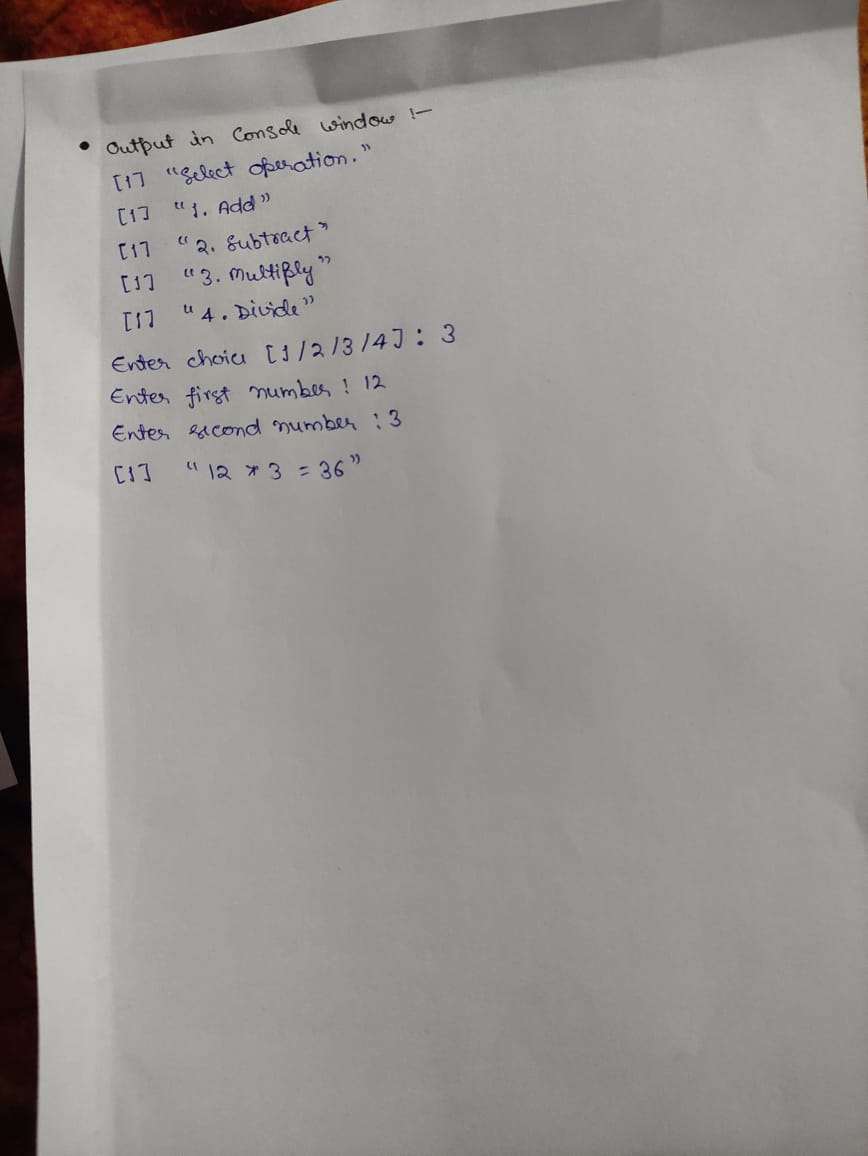 • Output in Console window :-
[1] "Select operation."
[1] "1. Add"
[1] "2. Subtract"
[1] "3. Multiply"
[1] "4. Divide"
Enter choice [1/2/3/4] : 3
Enter first number : 12
Enter second number : 3
[1] "12 * 3 = 36"